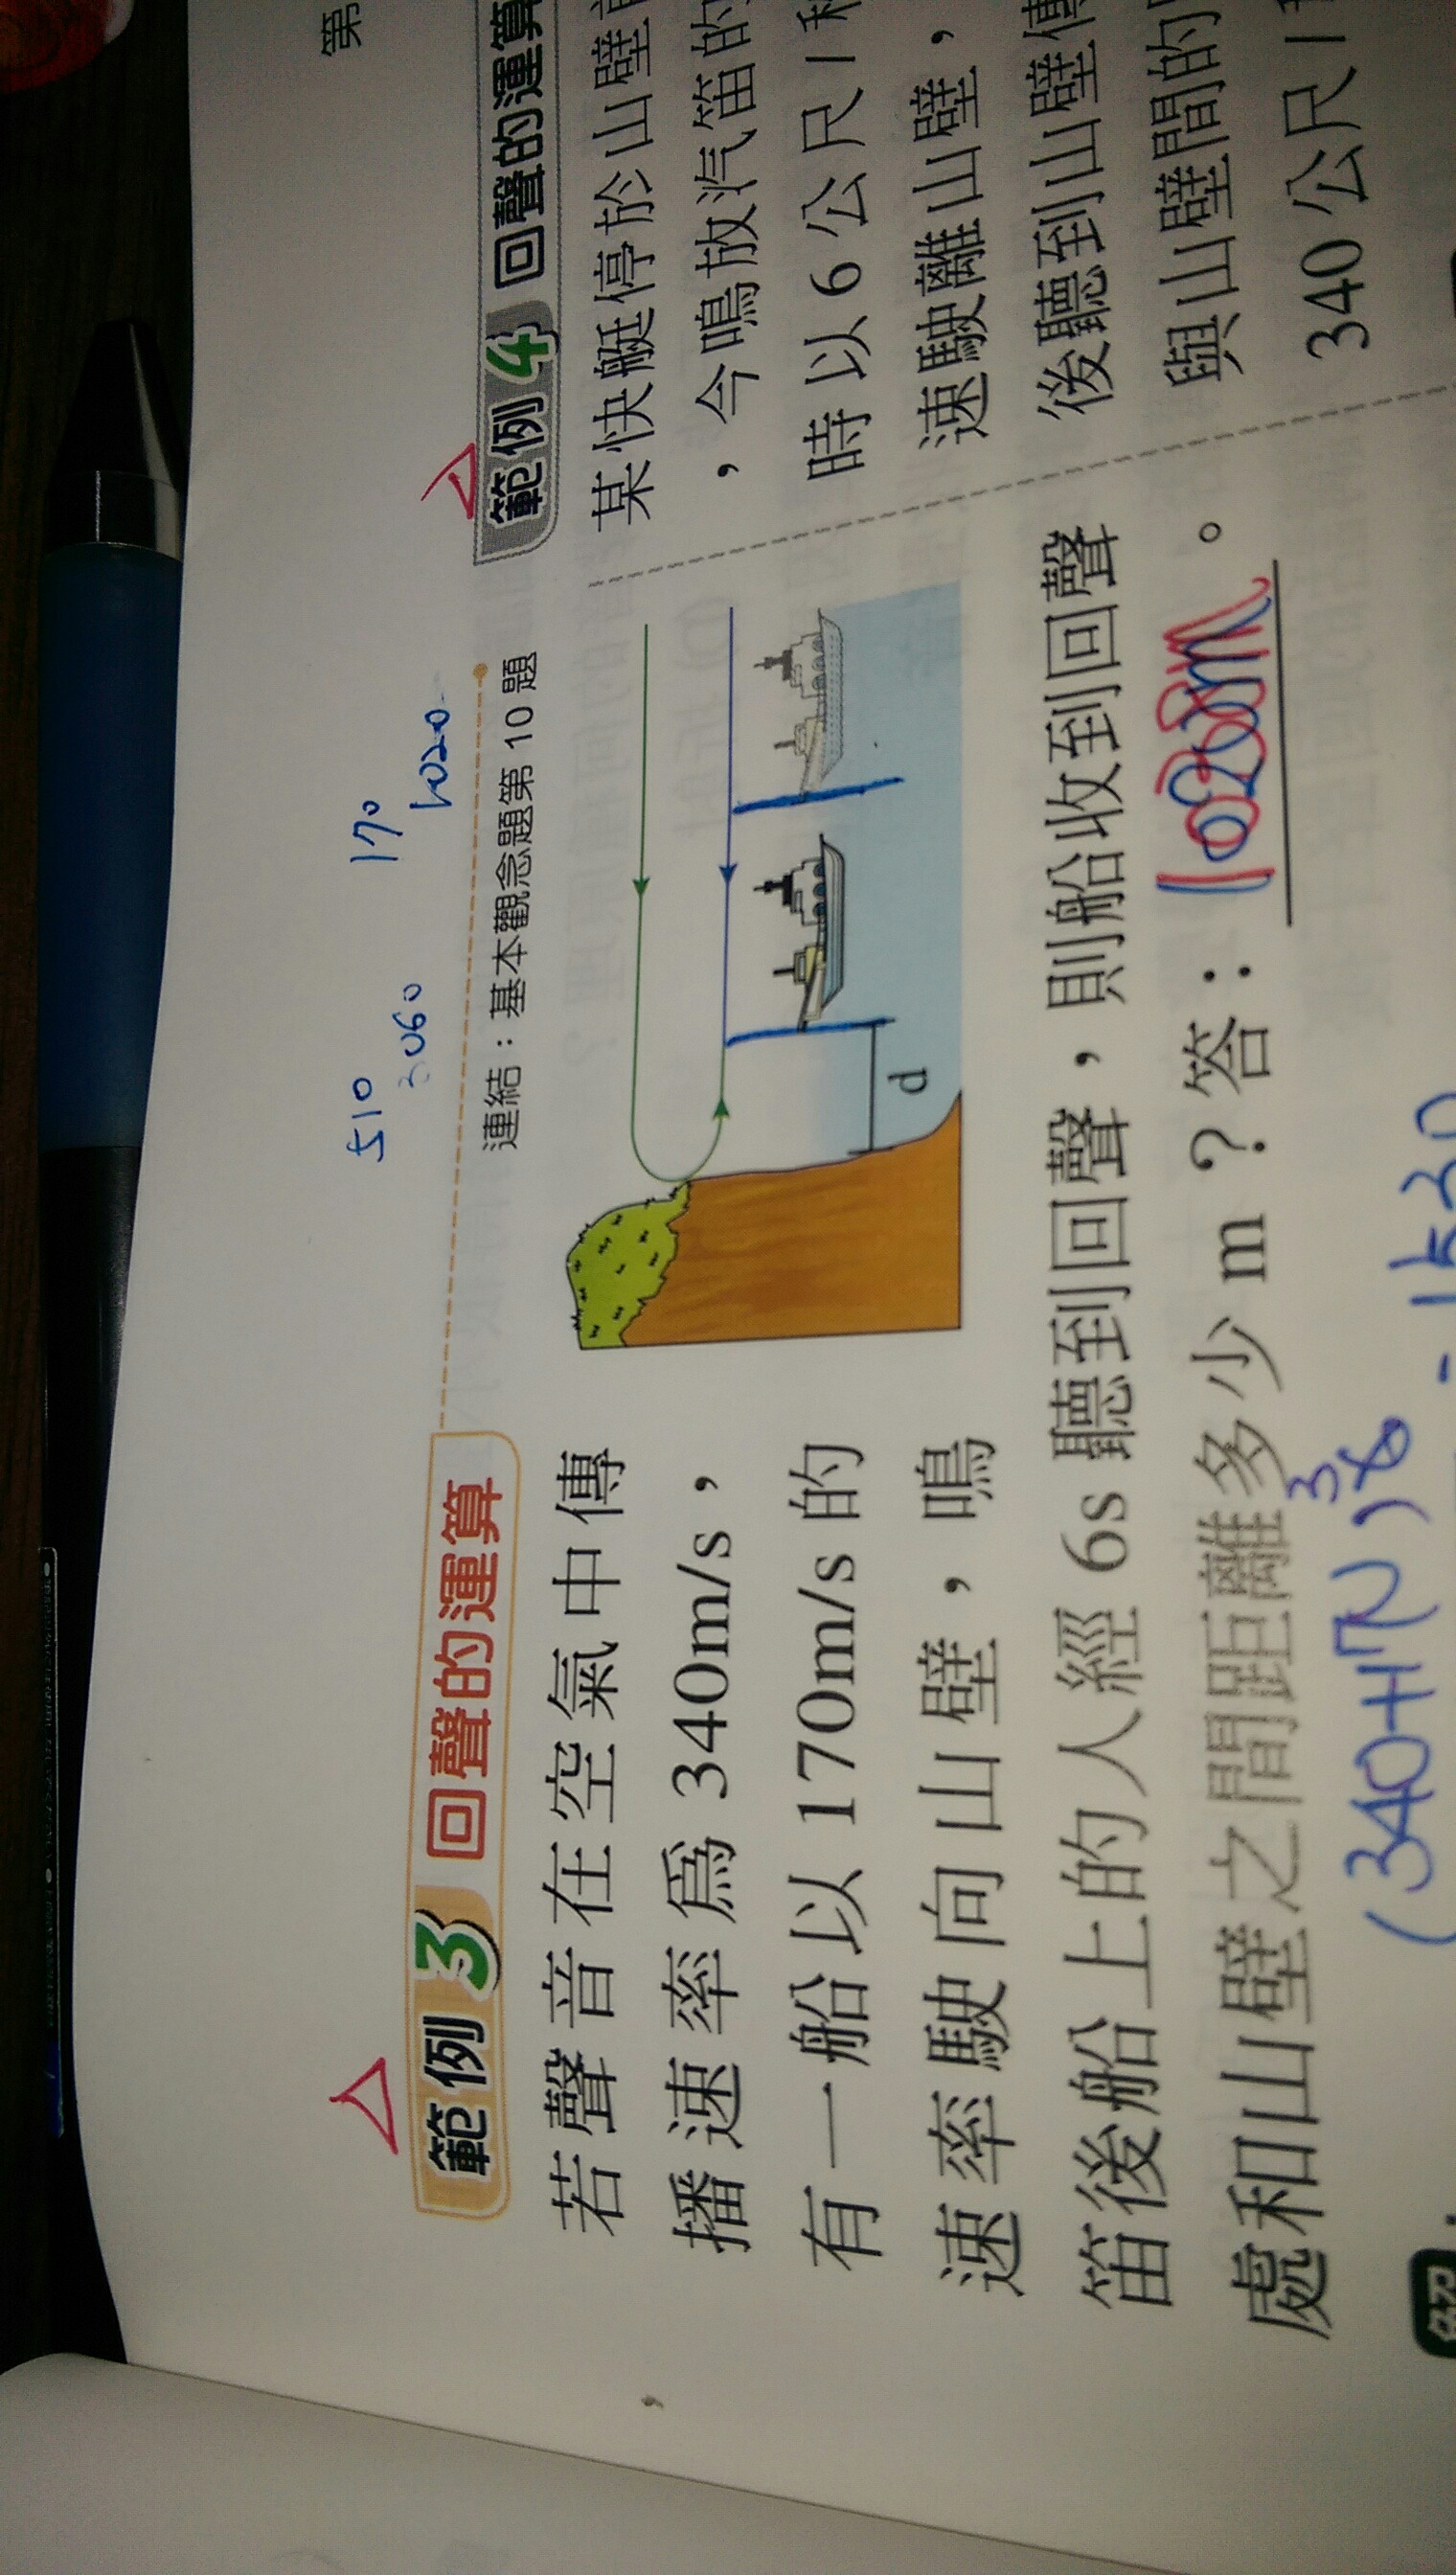 第
範例 3 回聲的運算
510 170
3060 1020
連結：基本觀念題第 10 題
若聲音在空氣中傳
播速率為 340m/s，
有一船以 170m/s 的
速率駛向山壁，鳴
笛後船上的人經 6s 聽到回聲，則船收到回聲
處和山壁之間距離多少 m？答：1020m。
d
3
- 1530
範例 4 回聲的運算
某快艇停於山壁
，今鳴放汽笛的
時以 6 公尺／秒
速駛離山壁，
後聽到山壁傳
與山壁間的
340 公尺／